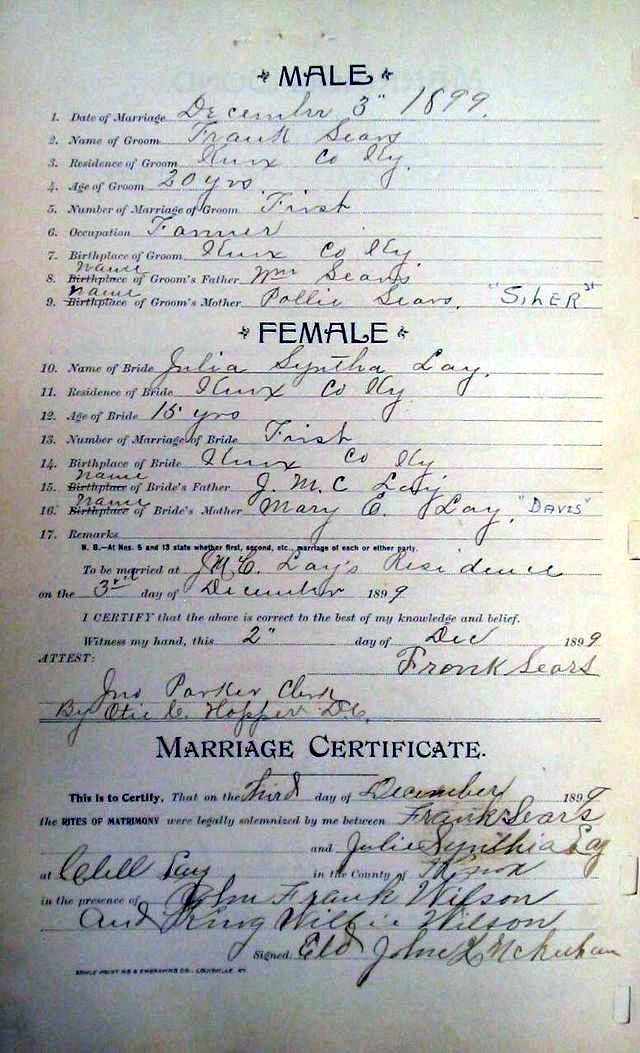 MALE
1. Date of Marriage December 3" 1899.
2. Name of Groom Frank Sears
3. Residence of Groom Knox Co Ky.
4. Age of Groom 20 yrs.
5. Number of Marriage of Groom First
6. Occupation Farmer
7. Birthplace of Groom Knox Co Ky
name
8. Birthplace of Groom's Father Wm Sears
name
9. Birthplace of Groom's Mother Pollie Sears. "SILER"
FEMALE
10. Name of Bride Julia Syntha Lay.
11. Residence of Bride Knox Co Ky
12. Age of Bride 15 yrs
13. Number of Marriage of Bride First
14. Birthplace of Bride Knox Co Ky
name
15. Birthplace of Bride's Father J. M. C Lay
name
16. Birthplace of Bride's Mother Mary E. Lay. "DAVIS"
17. Remarks
N. B.—At Nos. 5 and 13 state whether first, second, etc., marriage of each or either party.
To be married at J.M.C. Lay's Residence
on the 3rd day of December 1899
I CERTIFY that the above is correct to the best of my knowledge and belief.
Witness my hand, this 2" day of Dec 1899
ATTEST: Fronk Sears
Jno Parker Clerk
By Otie C. Hopper D.C.
MARRIAGE CERTIFICATE.
This is to Certify, That on the Third day of December 1899
the RITES OF MATRIMONY were legally solemnized by me between Frank Sears
and Julie Synthia Lay
at in the County of Knox
in the presence of John Frank Wilson
and King Wilson
Signed. Eld John